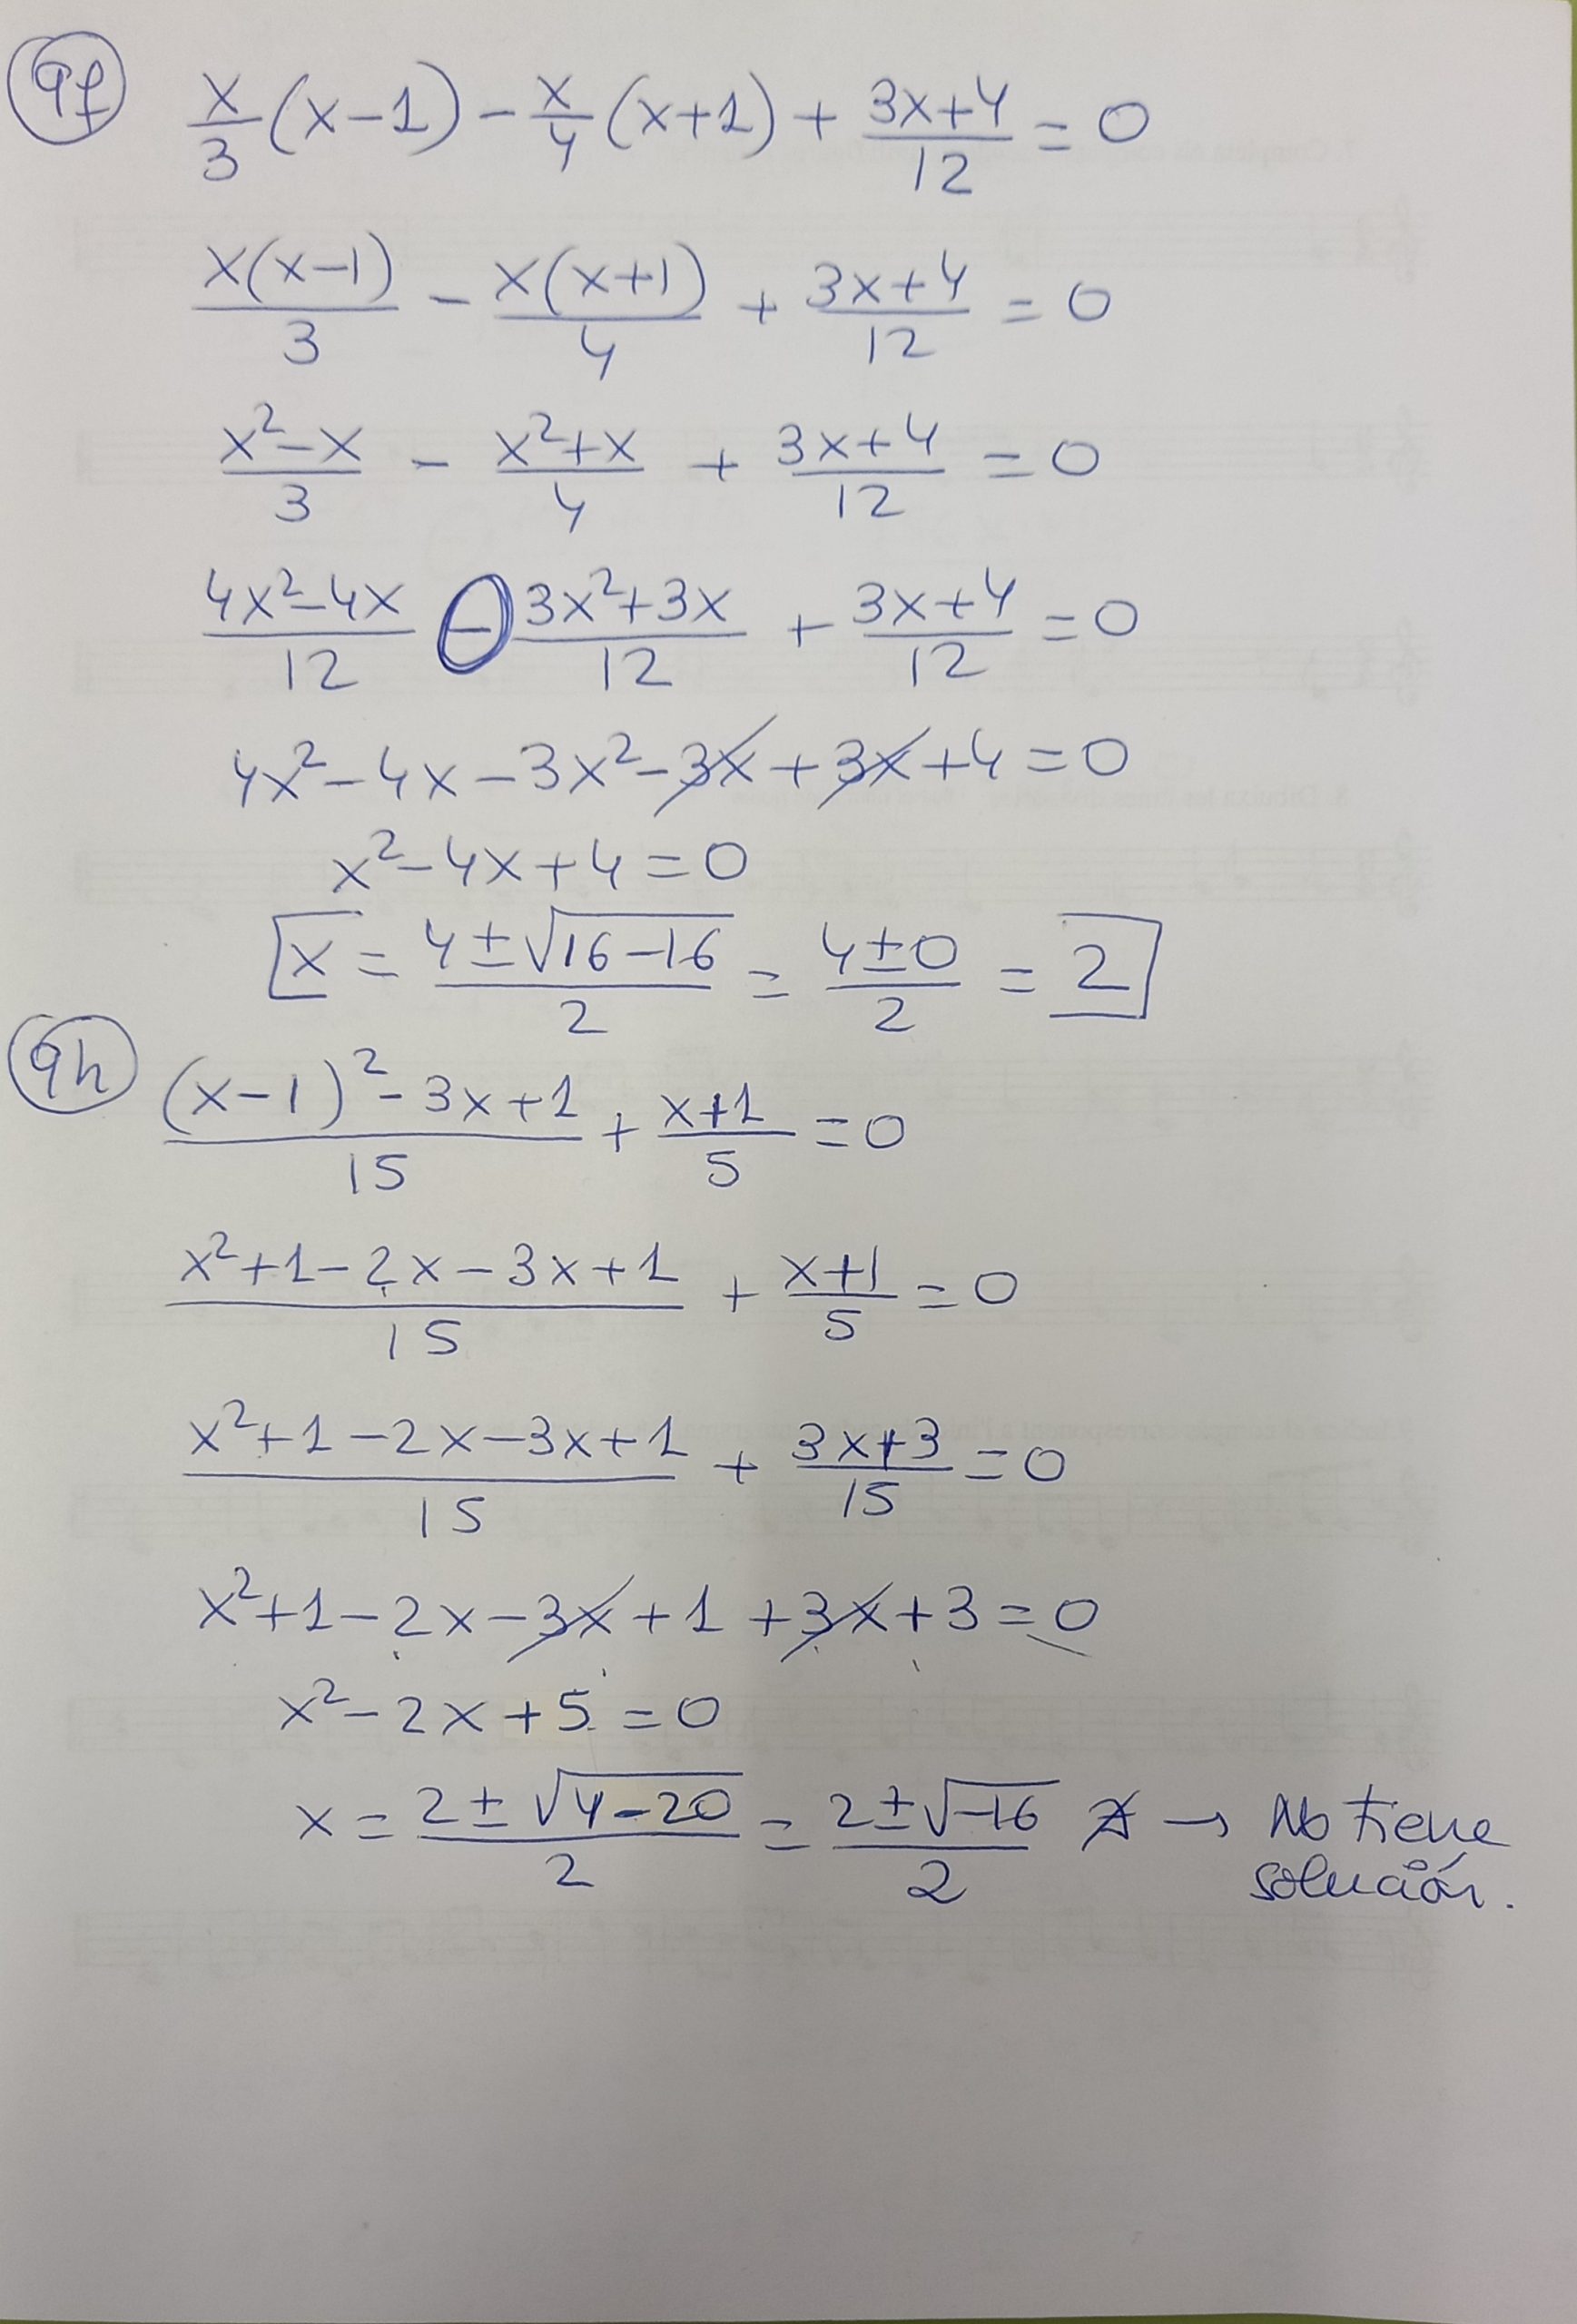 9f x/3 (x-1) - x/4 (x+1) + (3x+4)/12 = 0
x(x-1)/3 - x(x+1)/4 + (3x+4)/12 = 0
(x²-x)/3 - (x²+x)/4 + (3x+4)/12 = 0
(4x²-4x)/12 - (3x²+3x)/12 + (3x+4)/12 = 0
4x²-4x-3x²-3x+3x+4=0
x²-4x+4=0
x = (4±√(16-16))/2 = (4±0)/2 = 2
9h ((x-1)²-3x+1)/15 + (x+1)/5 = 0
(x²+1-2x-3x+1)/15 + (x+1)/5 = 0
(x²+1-2x-3x+1)/15 + (3x+3)/15 = 0
x²+1-2x-3x+1+3x+3=0
x²-2x+5=0
x = (2±√(4-20))/2 = (2±√-16)/2 ∄ → No tiene
solución.